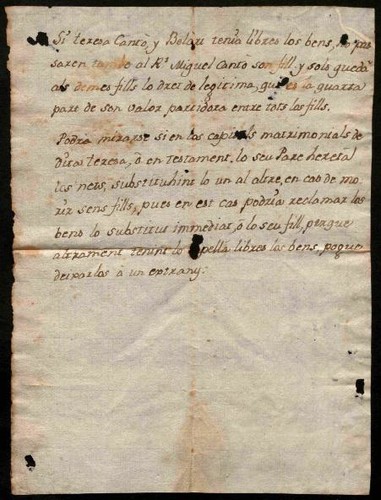 Si teresa Cantó, y Belart tenia libres los bens, no pas
saren tambe al R.t Miguel Cantó son fill, y solo quedá
als demes fills lo dret de legitima, que es la quarta
part de son valor partidora entre tots los fills.
Podria mirarse si en los capitols matrimonials de
Dita teresa, ó en testament, lo seu Pare heretá
los nets, substituhint lo un al altre, en cas de mo,
rir sens fills, pues en est cas podria reclamar los
bens lo substitut immediat, ó lo seu fill, perque
altrament tenint lo Capellá libres los bens, pogue
deixarlos á un extrany.